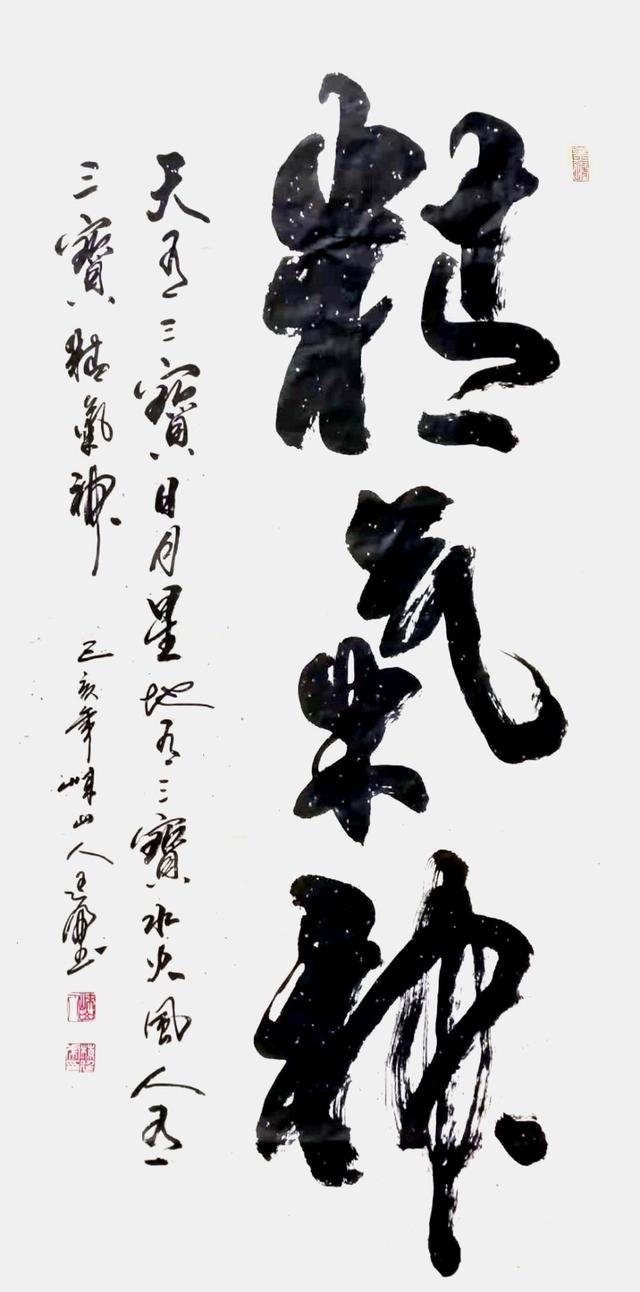 精氣神
天有三寶日月星地有三寶水火風人有
三寶精氣神 己亥年 山人